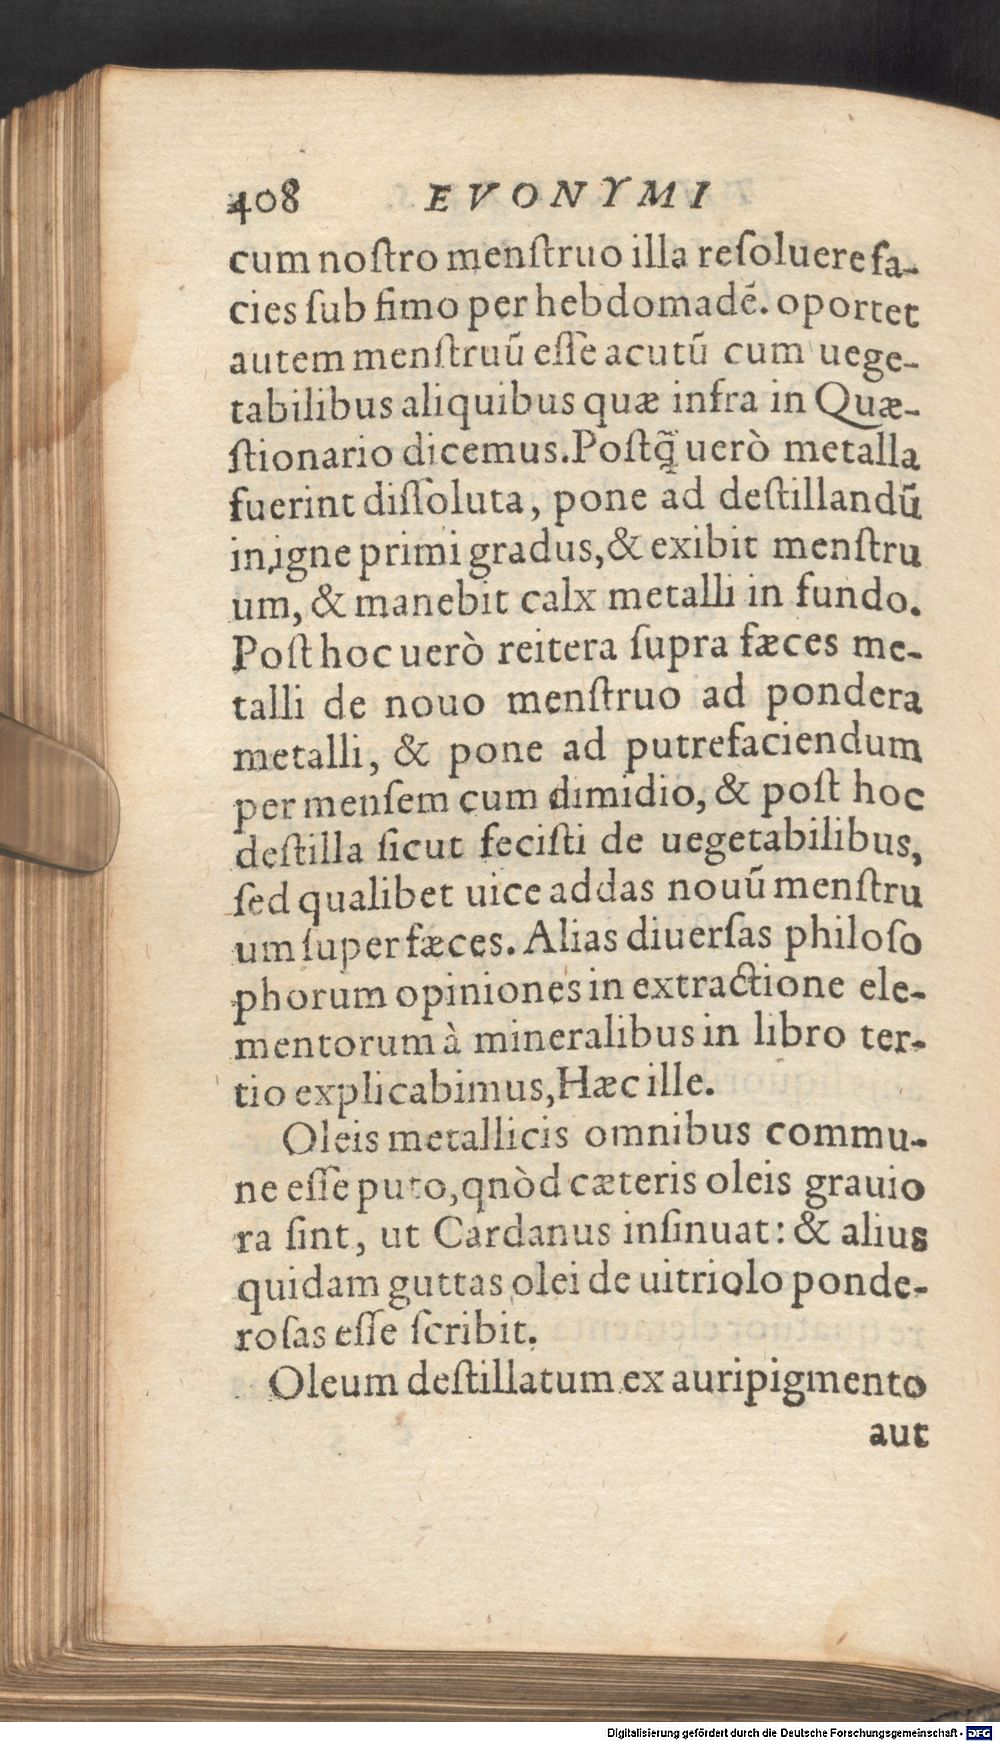 408 EVONYMI
cum noſtro menſtruo illa reſoluere fa-
cies ſub fimo per hebdomadẽ. oportet
autem menſtruũ eſſe acutũ cum uege-
tabilibus aliquibus quæ infra in Quæ-
ſtionario dicemus. Poſtq̃ uerò metalla
fuerint diſſoluta, pone ad deſtillandũ
in igne primi gradus, & exibit menſtru
um, & manebit calx metalli in fundo.
Poſt hoc uerò reitera ſupra fæces me-
talli de nouo menſtruo ad pondera
metalli, & pone ad putrefaciendum
per menſem cum dimidio, & poſt hoc
deſtilla ſicut feciſti de uegetabilibus,
ſed qualibet uice addas nouũ menſtru
um ſuper fæces. Alias diuerſas philoſo
phorum opiniones in extractione ele-
mentorum à mineralibus in libro ter-
tio explicabimus, Hæc ille.
Oleis metallicis omnibus commu-
ne eſſe puto, qnòd cæteris oleis grauio
ra ſint, ut Cardanus inſinuat: & alius
quidam guttas olei de uitriolo ponde-
roſas eſſe ſcribit.
Oleum deſtillatum ex auripigmento
aut
Digitalisierung gefördert durch die Deutsche Forschungsgemeinschaft - DFG